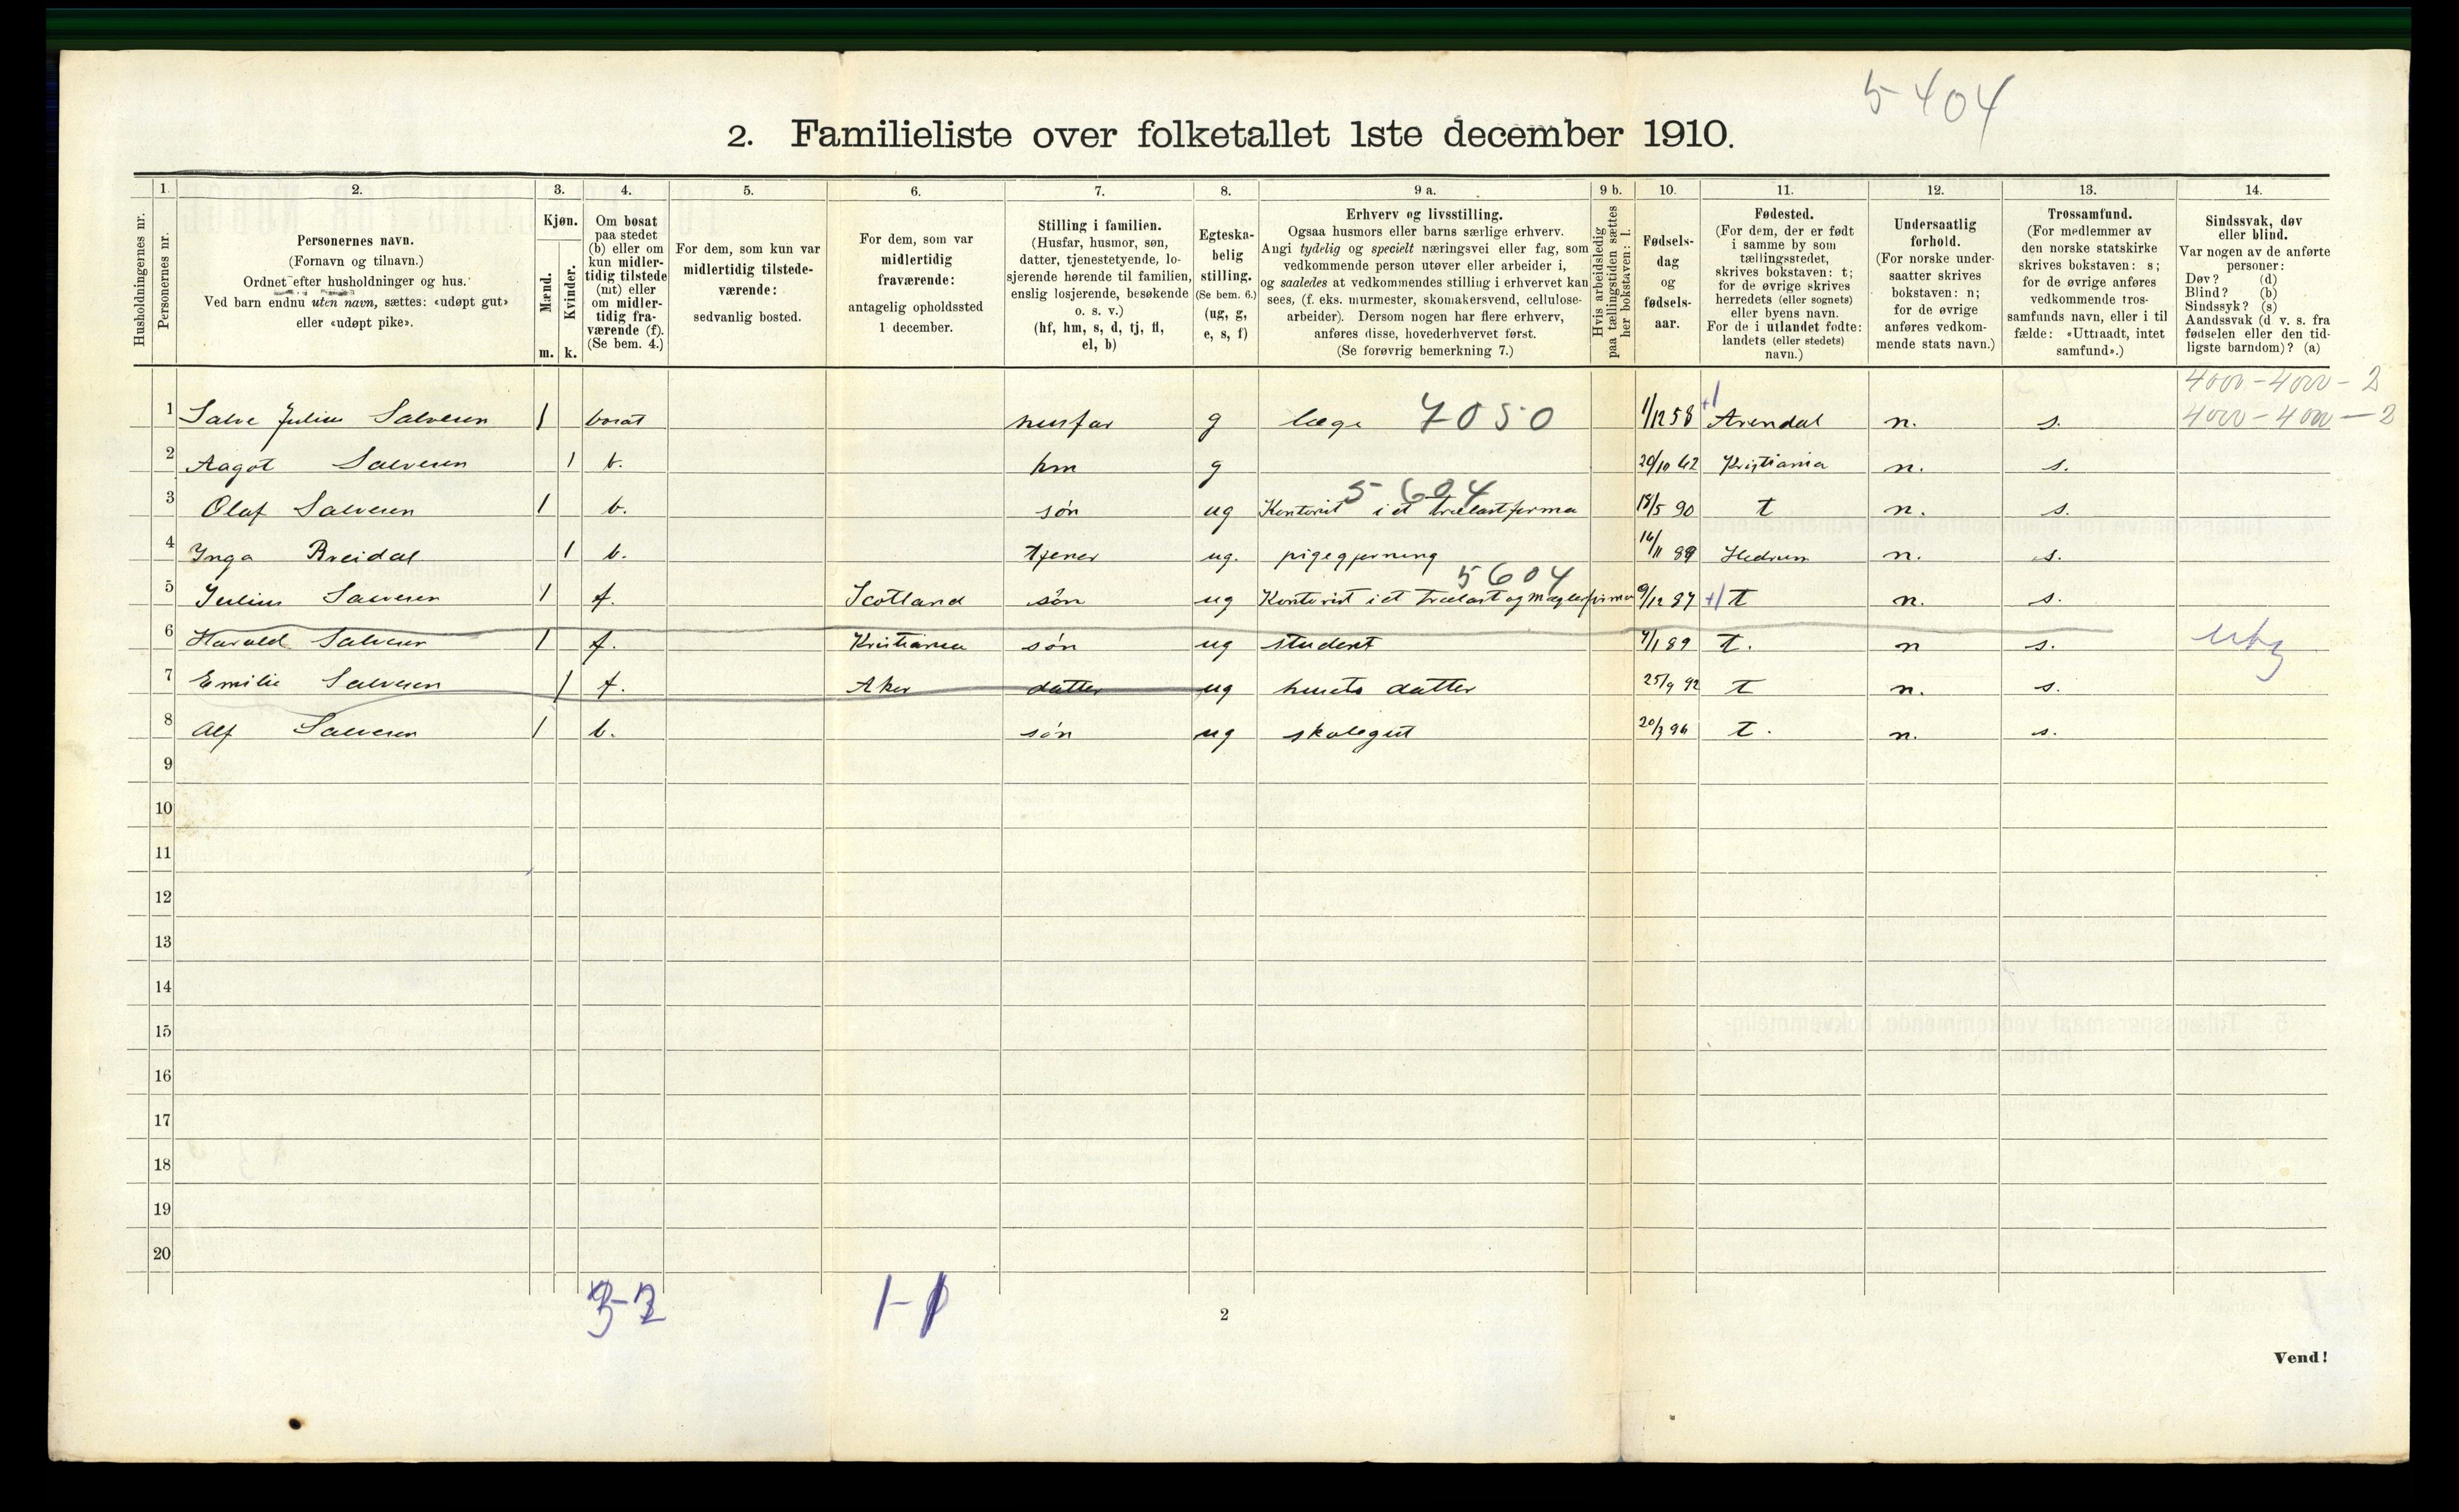 5404
2. Familieliste over folketallet 1ste december 1910.
1. 2. 3. 4. 5. 6. 7. 8. 9 a. 9 b. 10. 11. 12. 13. 14.
Husholdningernes nr.
Personernes nr.
Personernes navn.
(Fornavn og tilnavn.)
Ordnet efter husholdninger og hus.
Ved barn endnu uten navn, sættes: «udøpt gut»
eller «udøpt pike».
Kjøn.
Mænd.
Kvinder.
m. k.
Om bosat
paa stedet
(b) eller om
kun midler-
tidig tilstede
(mt) eller
om midler-
tidig fra-
værende (f).
(Se bem. 4.)
For dem, som kun var
midlertidig tilstede-
værende:
sedvanlig bosted.
For dem, som var
midlertidig
fraværende:
antagelig opholdssted
1 december.
Stilling i familien.
(Husfar, husmor, søn,
datter, tjenestetyende, lo-
sjerende hørende til familien,
enslig losjerende, besøkende
o. s. v.)
(hf, hm, s, d, tj, fl,
el, b)
Egteska-
belig
stilling.
(Se bem. 6.)
(ug, g,
e, s, f)
Erhverv og livsstilling.
Ogsaa husmors eller barns særlige erhverv.
Angi tydelig og specielt næringsvei eller fag, som
vedkommende person utøver eller arbeider i,
og saaledes at vedkommendes stilling i erhvervet kan
sees, (f. eks. murmester, skomakersvend, cellulose-
arbeider). Dersom nogen har flere erhverv,
anføres disse, hovederhvervet først.
(Se forøvrig bemerkning 7.)
Hvis arbeidsledig
paa tællingstiden sættes
her bokstaven: l.
Fødsels-
dag
og
fødsels-
aar.
Fødested.
(For dem, der er født
i samme by som
tællingsstedet,
skrives bokstaven: t;
for de øvrige skrives
herredets (eller sognets)
eller byens navn.
For de i utlandet fødte:
landets (eller stedets)
navn.)
Undersaatlig
forhold.
(For norske under-
saatter skrives
bokstaven: n;
for de øvrige
anføres vedkom-
mende stats navn.)
Trossamfund.
(For medlemmer av
den norske statskirke
skrives bokstaven: s;
for de øvrige anføres
vedkommende tros-
samfunds navn, eller i til
fælde: «Uttraadt, intet
samfund».)
Sindssvak, døv
eller blind.
Var nogen av de anførte
personer:
Døv? (d)
Blind? (b)
Sindssyk? (s)
Aandssvak (d v. s. fra
fødselen eller den tid-
ligste barndom)? (a)
4000-4000-2
1 Salve Julius Salvesen 1 bosat husfar g læge 7050 1/12 58 +1 Arendal n. s. 4000-4000-2
2 Aagot Salvesen 1 b. hm g 20/10 62 Kristiania n. s.
3 Olaf Salvesen 1 b. søn ug Kontorist i et trælastfirma 5604 18/5 90 t n. s.
4 Inga Breidal 1 b. tjener ug. pigegjerning 14/11 89 Hedrum n. s.
5 Julius Salvesen 1 f. Scotland søn ug Kontorist i et trælast og mæglerfirma 5604 9/12 87 +1 t n. s.
6 Harald Salvesen 1 f. Kristiania søn ug student 7/1 89 t. n s.
7 Emilie Salvesen 1 f. Aker datter ug husets datter 25/9 92 t n. s.
8 Alf Salvesen 1 b. søn ug skolegut 20/3 96 t. n. s.
9
10
11
12
13
14
15
16
17
18
19
20
3-2 1-1
2
Vend!